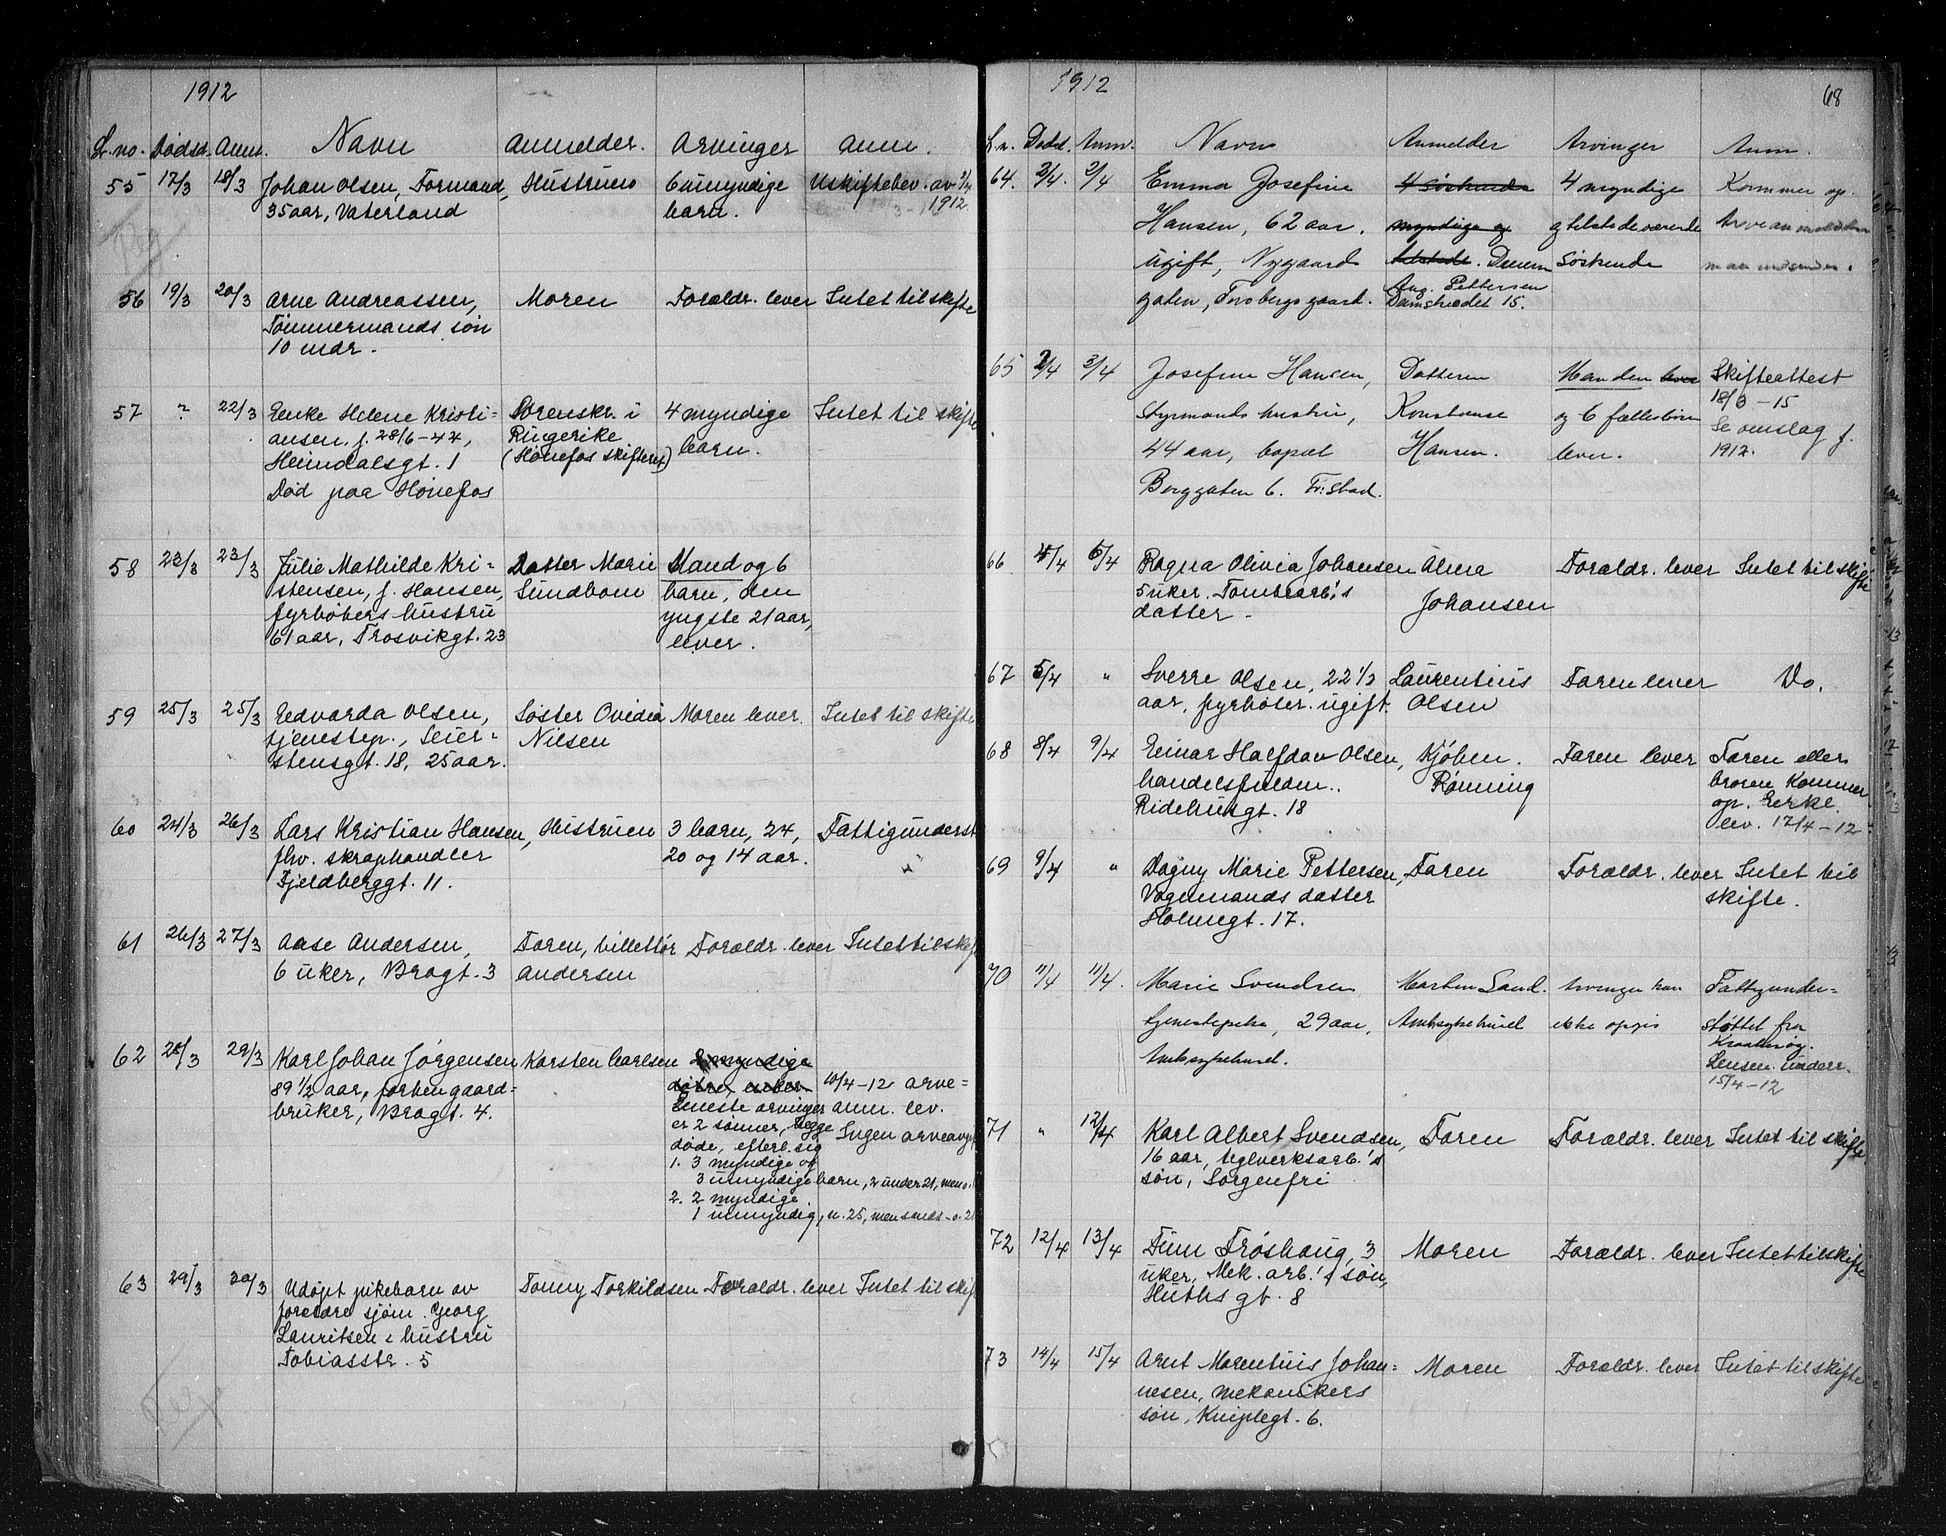 1912
L.no. Dødsd. Anm. Navn Anmelder. Arvinger Anm.
55 17/3 18/3 Johan Olsen, Formand, Hustruen 6 umyndige Uskiftebev. av
35 aar, Vaterland barn. 1912.
56 19/3 20/3 Arne Andreassen, Moren Forældr. lever Intet til skifte
Tømmermands søn
10 mdr.
57 ? 22/3 Enke Helene Kristi- Sorenskr. i 4 myndige Intet til skifte
ansen, f. 28/6-44, Ringerike barn.
Heimdalsgt. 1 (Hønefos skifteret)
Død paa Hønefos
58 23/3 23/3 Julie Mathilde Kri- Datter Marie Mand og 6
stensen, f. Hansen, Sundbom barn, den
fyrbøters hustru yngste 21 aar,
61 aar, Trosvikgt. 23 lever.
59 25/3 25/3 Edvarda Olsen, Søster Ovidia Moren lever. Intet til skifte
tjenestep., Seier- Nilsen
stensgt. 18, 25 aar.
60 24/3 26/3 Lars Kristian Hansen, Hustruen 3 barn, 24, Fattigunderst.
fhv. skraphandler 20 og 14 aar.
Fjeldberggt. 11.
61 26/3 27/3 Aase Andersen, Faren, billettør Forældr. lever Intet til skifte
6 uker, Bragt. 3 Andersen
62 28/3 29/3 Karl Johan Jørgensen Karsten Carlsen 2 myndige
89 1/2 aar, forhen gaard- døtre 10/4-12 arve-
bruker, Bragt. 4. Eneste arvinger anm. lev.
er 2 sønner, begge Ingen arveavgift
døde, efterl. sig
1. 3 myndige og
3 umyndige barn, 2 under 21, men o.
2. 2 myndige
1 umyndig, u. 25,
63 29/3 30/3 Udøpt pikebarn av Tonny Torkildsen Forældr. lever Intet til skifte
forældre sjøm. Georg
Lauritsen & hustru
Tobiasstr. 5
1912 68
L.n. Dødsd. Anm. Navn Anmelder Arvinger Anm.
64. 2/4. 2/4 Emma Josefine 4 søskende 4 myndige Kommer op.
Hansen, 62 aar. myndige og og tilstedeværende Arveanmeldelse
Ugift, Nygaards tilstede. Søskende maa indsendes.
gaten, Torsbergs gaard. Aug. Pettersen
Damstrædet 15.
65 2/4 3/4 Josefine Hansen, Datteren Manden lever Skifteattest
Styrmands hustru, Konstanse og 6 fællesbørn 18/3-15
44 aar, bopæl Hansen. lever. Se omslag f.
Berggaten 6. Fr.stad. 1912.
66 4/4 5/4 Ragna Olivia Johansen Alma Forældr. lever Intet til skifte
5 uker. Tomtearb.'s Johansen
datter.
67 5/4 " Sverre Olsen, 22 1/2 Laurentius Faren lever Do.
aar, fyrbøter. ugift. Olsen
68 8/4 9/4 Einar Halfdan Olsen, Kjøbm. Faren lever Faren eller
handelsfuldm.. Rønning broren kommer
Ridehusgt. 18 op. Erkl.
lev. 17/4-12
69 9/4 " Dagny Marie Pettersen, Faren Forældr. lever Intet til
Vognmands datter skifte.
Holmegt. 17.
70 11/4 11/4. Marie Svendsen Morten Sand. Arvinger kan Fattigunder-
tjenestepike, 29 aar, Amtsykehuset ikke opgis støttet fra
Amtsykehuset. Kraakerøy.
Lensm. underr.
15/4-12
71 " 12/4 Karl Albert Svendsen, Faren Forældr. lever Intet til skifte
16 aar, teglverksarb.'s
søn, Sorgenfri
72 12/4 13/4 Finn Frøshaug, 3 Moren Forældr. lever Intet til skifte
uker, Mek. arb.'s søn,
Huths gt. 8
73 14/4 15/4 Arnt Morentius Johan- Moren Forældr. lever Intet til skifte
nesen, mekanikers
søn, Kniplegt. 6.